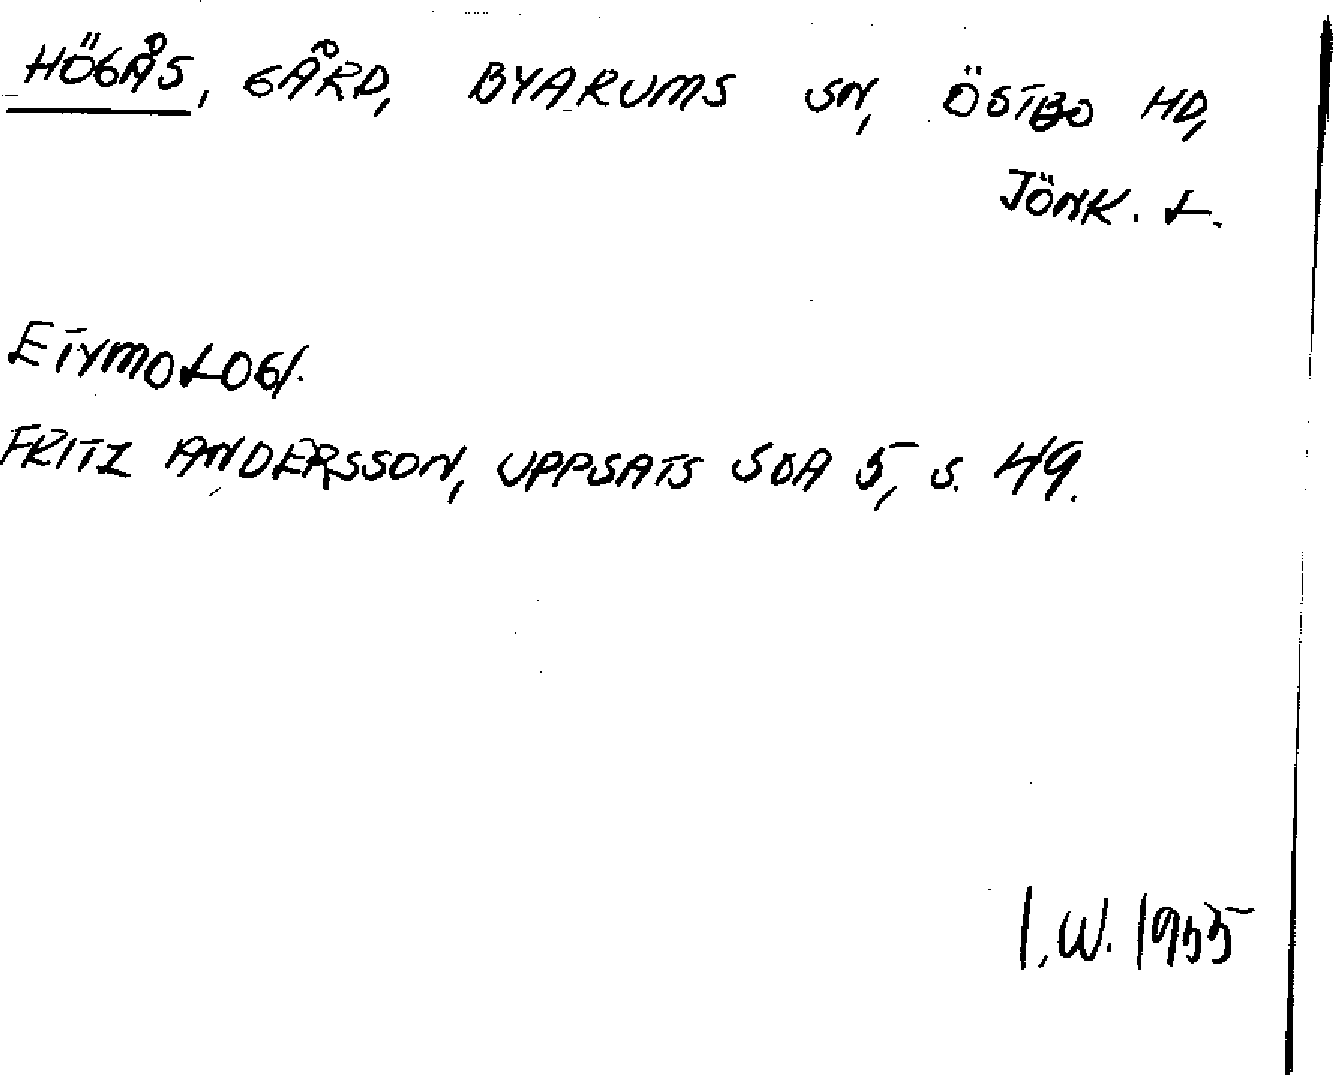 HÖGÅS, GÅRD, BYARUMS SN, ÖSTBO HD,
JÖNK. L.
ETYMOLOGI.
FRITZ ANDERSSON, UPPSATS SOA 5, S. 49.
I.W. 1955